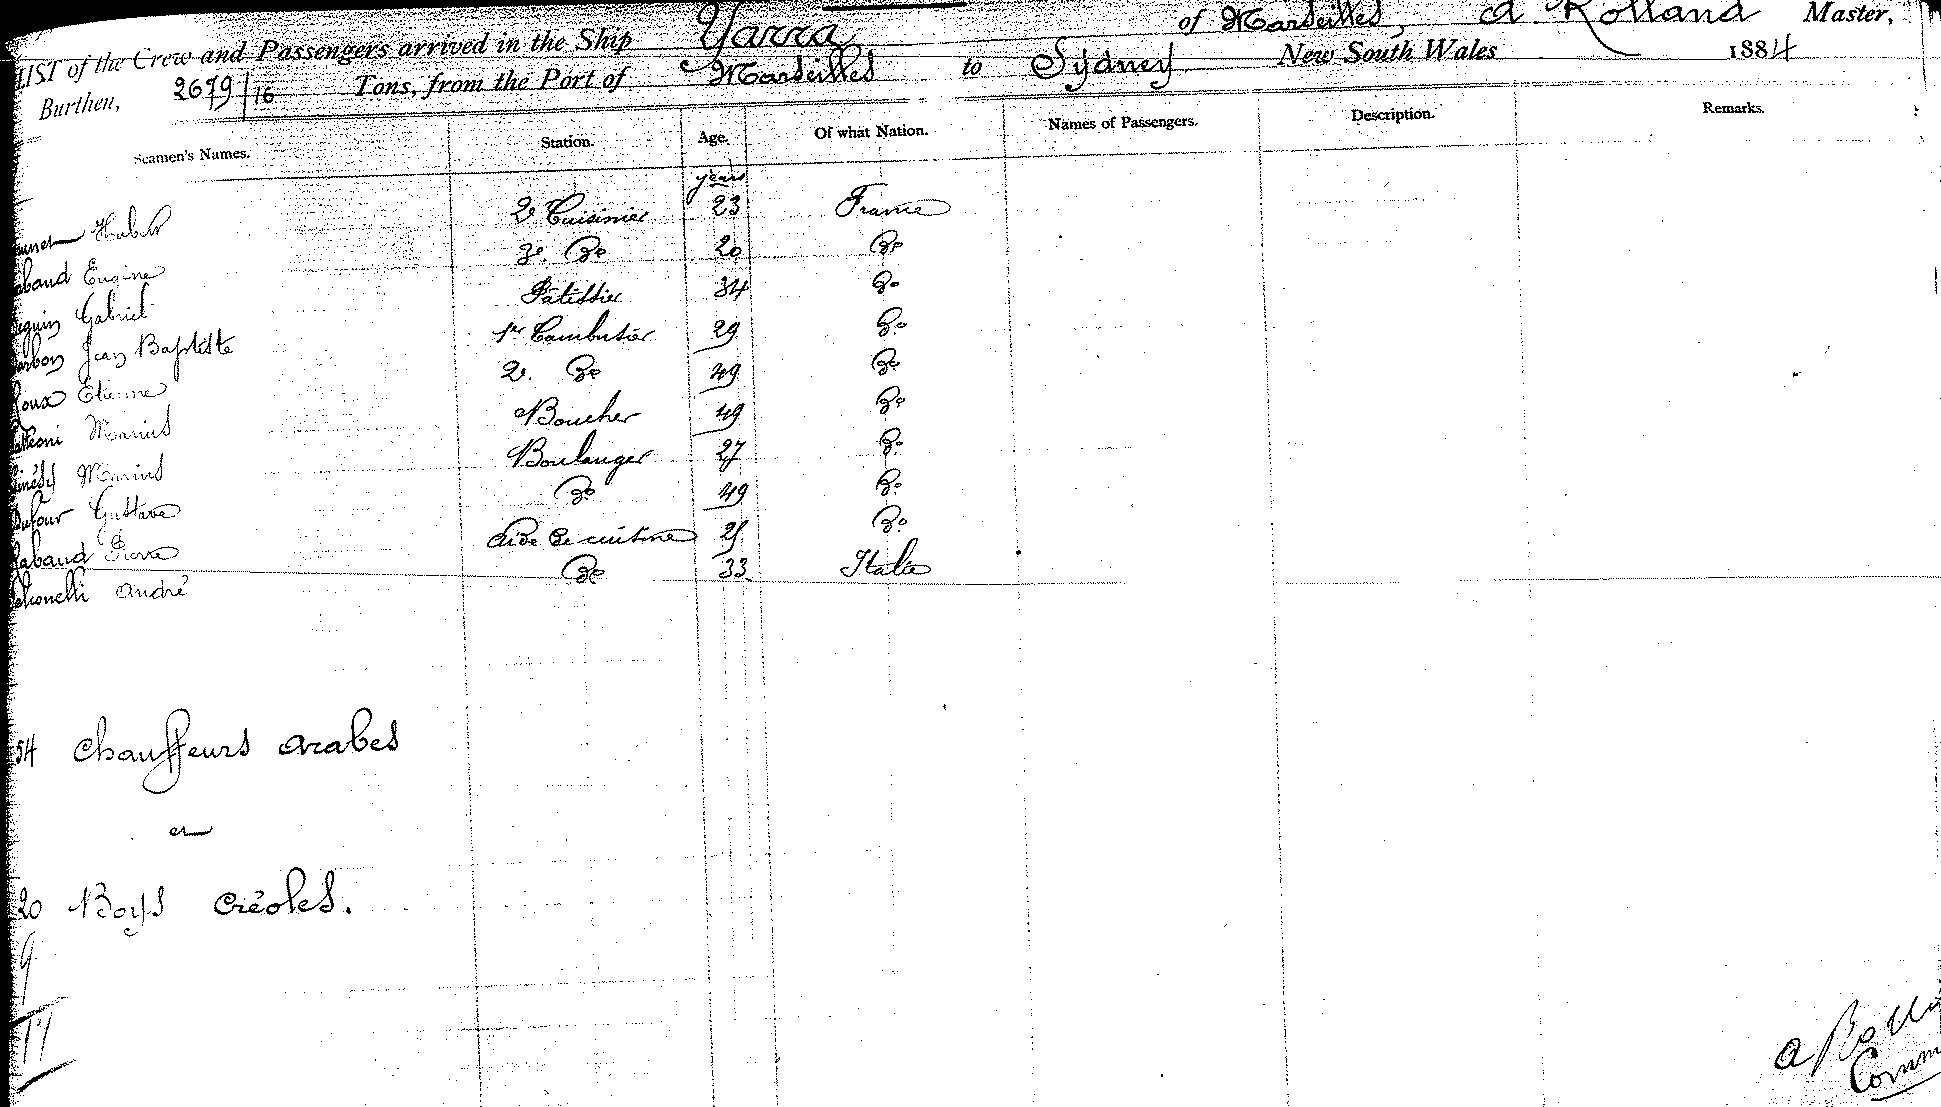 LIST of the Crew and Passengers arrived in the Ship Yarra of Marseilles, A Rolland Master,
Burthen, 2679/16 Tons, from the Port of Marseilles to Sydney New South Wales 1884
Seamen's Names. Station. Age. Of what Nation. Names of Passengers. Description. Remarks.
years
Hubert 2e Cuisinier 23 France
baud Eugène 3e. Do 20 Do
guin Gabriel Patissier 34 Do
rbon Jean Baptiste 1er Cambusier 29 Do
Roux Etienne 2e. Do 49 Do
Marius Boucher 49 Do
Marius Boulanger 27 Do
Dufour Gustave Do 49 Do
abaud Pierre Aide de cuisine 25 Do
honelli André Do 33 Italie
54 Chauffeurs arabes
et
20 Boys créoles.
9
A Roll
Comm